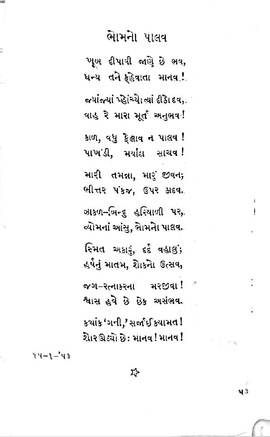 ભોમનો પાલવ
ખૂણ દીપાવી જાણે છે ભવ,
ધન્ય તને કહેવાતા માનવ!
જ્યાંજ્યાં પહોંચ્યો ત્યાં દીઠો દવ,
વાહ રે મારા મૂર્ત અનુભવ!
કાળ, વધુ ફેલાવ ન પાલવ!
પાખંડી, મર્યાદા સાચવ!
મારી તમન્ના, મારું જીવન;
ભીત્તર પંકજ, ઉપર કાદવ.
ઝાકળ-બિન્દુ હરિયાળી પર,
વ્યોમનાં આંસુ, ભોમનો પાલવ.
સ્મિત અકારું, દર્દ વહાલું;
હર્ષનું માતમ, શોકનો ઉત્સવ,
જગ-રત્નાકરના મરજીવા!
શ્વાસ હવે છે છેક અસંભવ.
ક્યાંક 'ગની,' સર્જાઈ ક્યામત!
શોર ઊઠ્યો છે: માનવ! માનવ!
૧૫-૧-'૫૩
૫૩